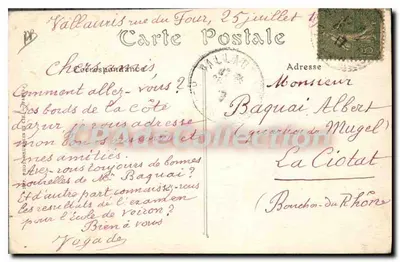 Vallauris rue du Four, 25 juillet
Carte Postale
Correspondance
Adresse
Chers amis
Comment allez-vous?
Des bords de la Côte
d'azur vous adresse
mon bon souvenir et
mes amitiés.
Avez-vous toujours de bonnes
nouvelles de Mr Baquai?
Et d'autre part connaissez-vous
les resultats de l'examen
pour l'Ecole de Voiron?
Bien à vous
Monsieur
Baquai Albert
de Mugel
La Ciotat
Bouches-du-Rhône
PlaceDelaCollection